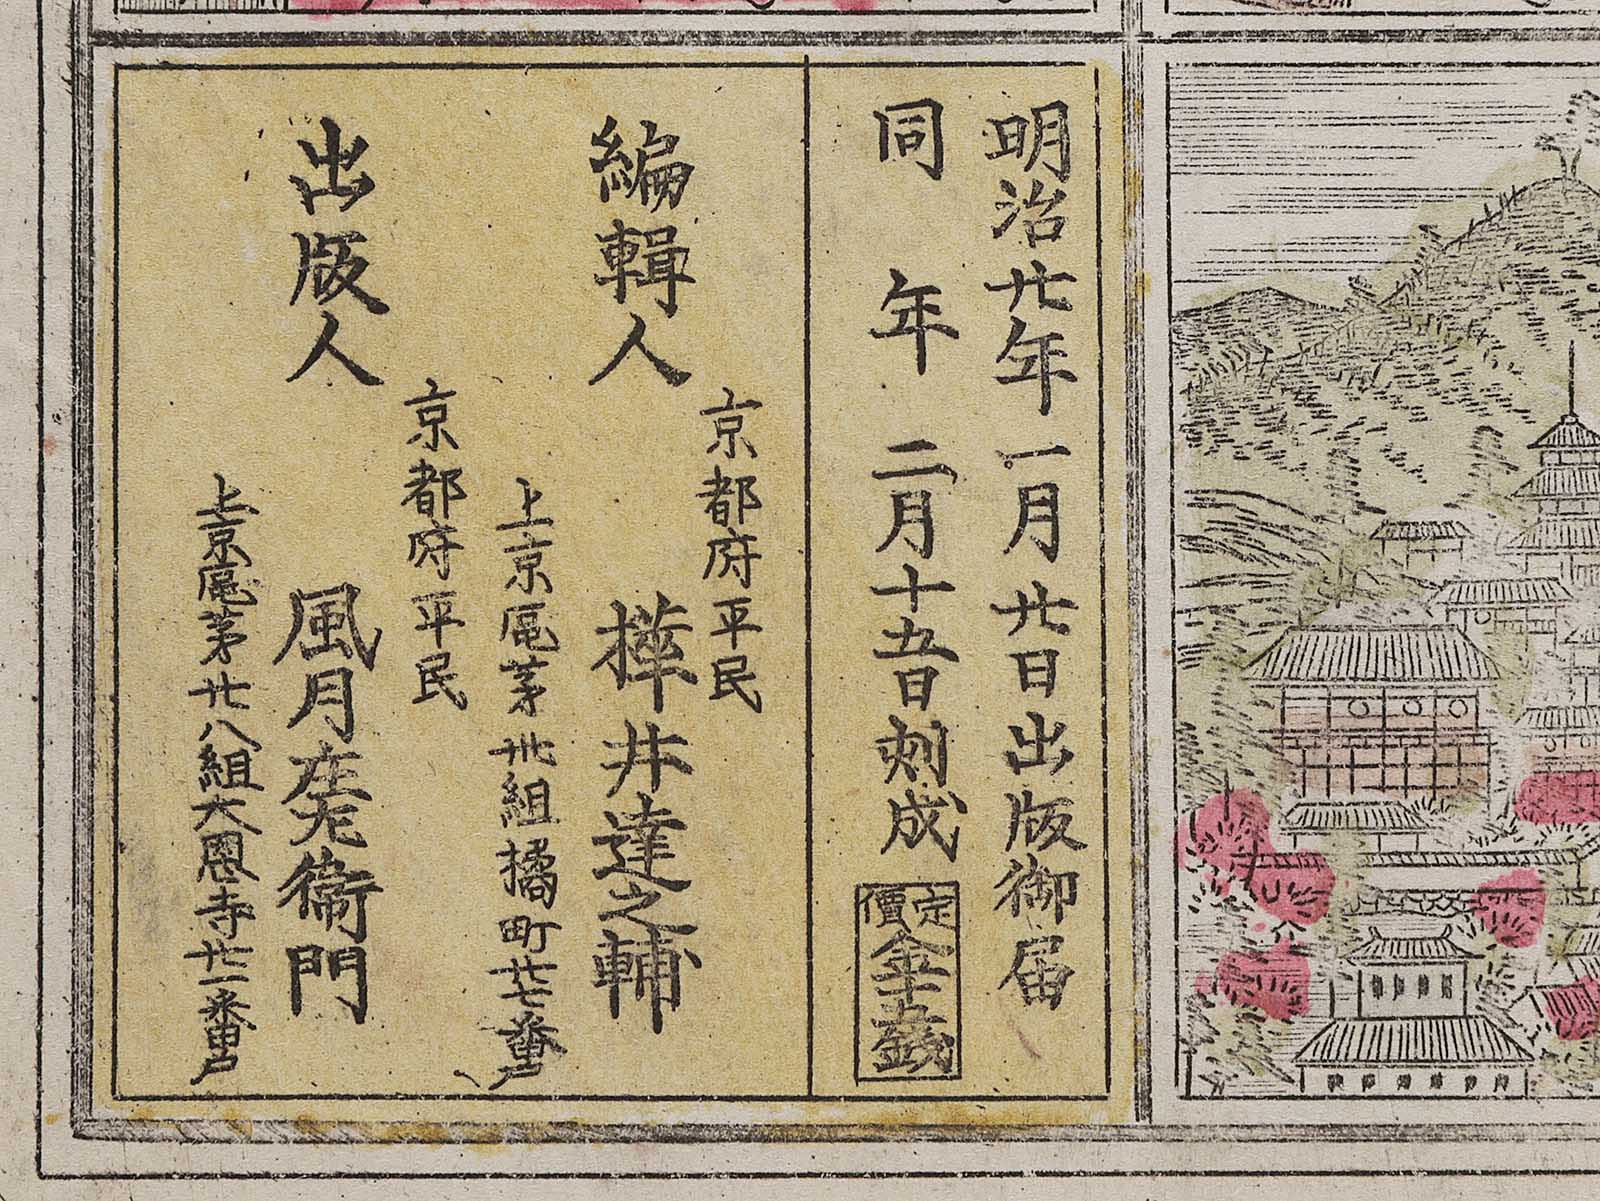 明治廿年一月廿日出版御届
同年二月十五日刻成
定價
金十五錢
京都府平民
編輯人 樺井達之輔
上京區第卅組橘町廿七番戸
京都府平民
出版人 風月庄左衛門
上京區第廿八組大恩寺廿一番戸